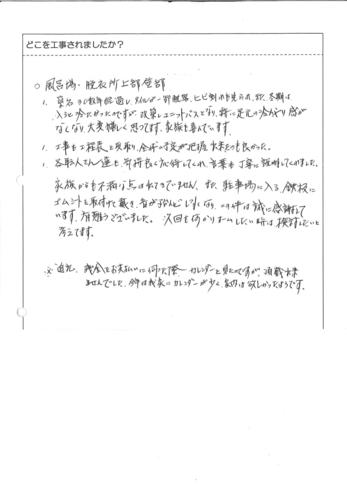 どこを工事されましたか？
○ 風呂場・脱衣所上部壁部
1. 築30数年経過し、タイルが一部離脱、ヒビ割れも見られ、又、冬期は
入るに冷たかったのですが、改築しユニットバスになり、特に足元の冷たい感が
なくなり大変嬉しく思ってます。家族も喜んでいます。
1. 工事も工程表を見取り、全体の状況が把握出来たのも良かった。
1. 各職人さん達も、気持良く応待してくれ、言葉も丁寧に説明してくれました。
家族からも不満な点は出てきていません。又、駐車場に入る鉄板に
ゴムシートを取付けて戴き、音がほとんどしなくなり、この件は誠に感謝して
います。有難うございました。次回も何かリホームしたい時は、検討したいと
考えてます。
※追兄、残金をお支払いに伺った際、カレンダーを見たのですが、頂戴出来
ませんでした。今年は我家にカレンダーが少く、家内は欲しかったようです。